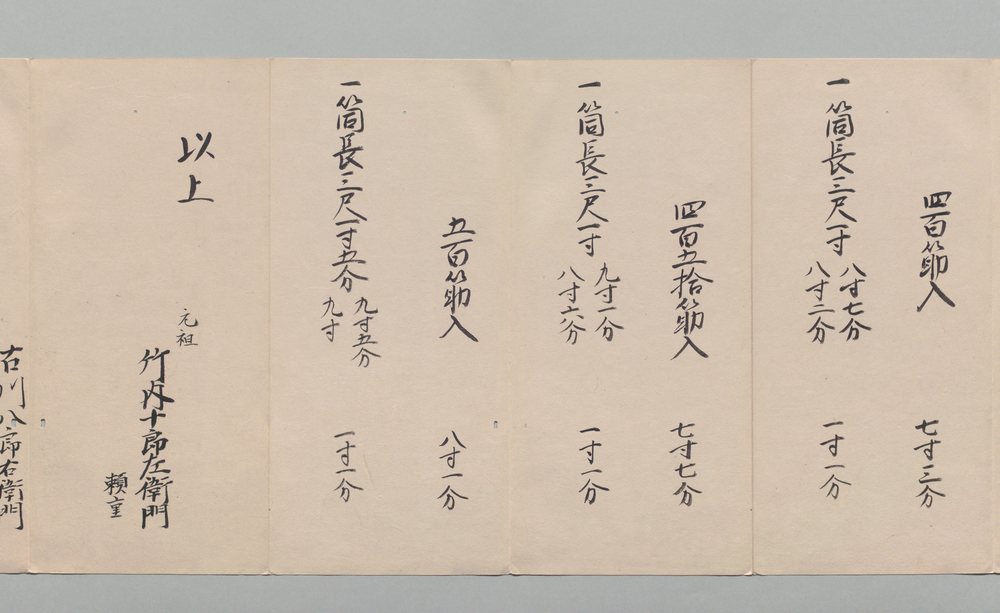 四百筋入 七寸三分
一筒長三尺一寸 八寸七分 八寸二分 一寸一分
四百五拾筋入 七寸七分
一筒長三尺一寸 九寸一分 八寸六分 一寸一分
五百筋入 八寸一分
一筒長三尺一寸五分 九寸五分 九寸 一寸一分
以上
元祖
竹内十郎左衛門
頼重
古川八郎右衛門